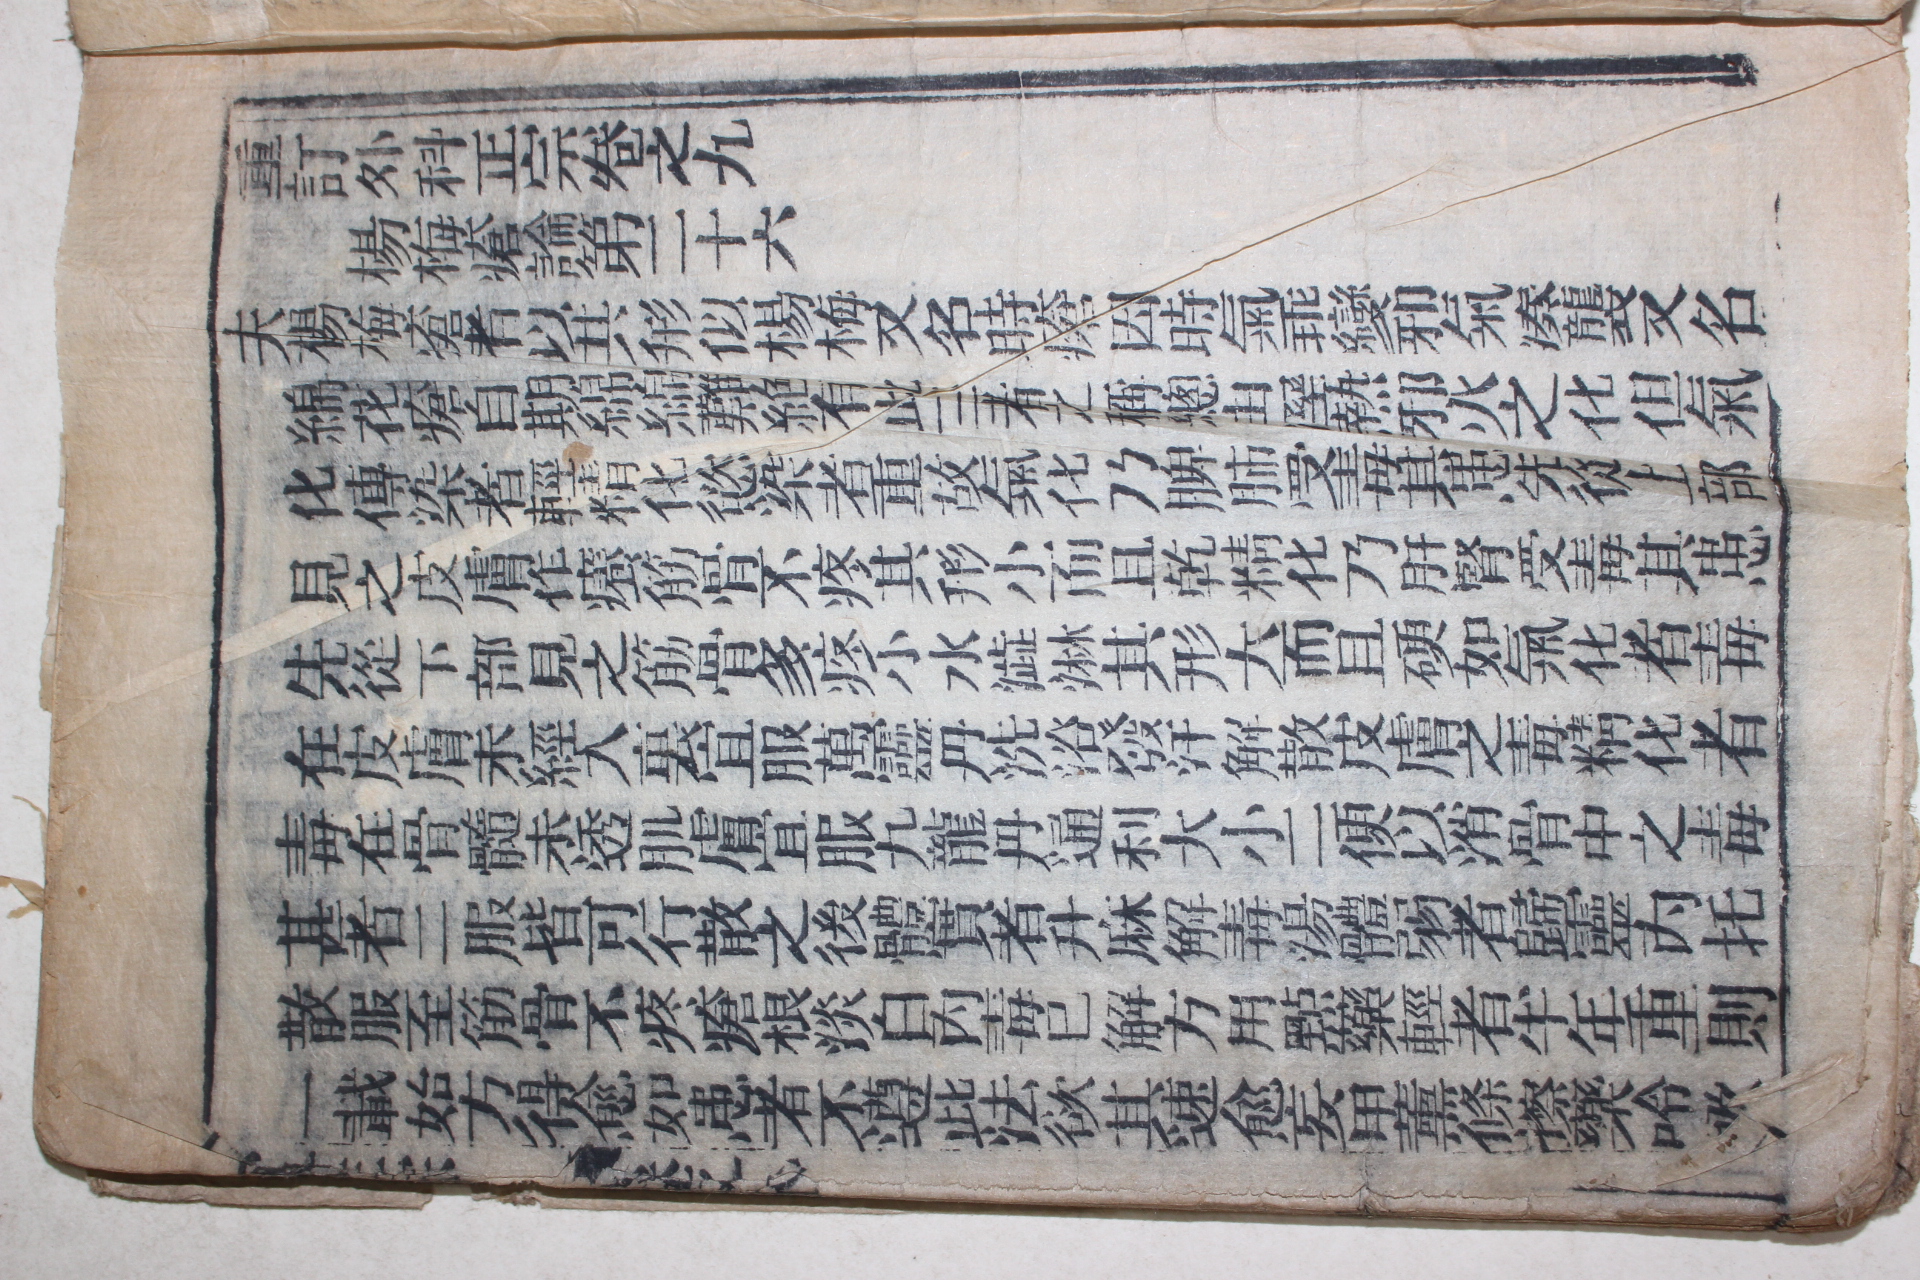 重訂外科正宗卷之九
楊梅瘡論第三十六
夫楊梅瘡者以其形似楊梅又名時瘡因時氣乖變邪氣湊襲又名
綿花瘡自期綿綿難絕有此三者之稱總由濕熱邪火之化但氣
化傳染者輕精化慾染者重故氣化乃脾肺受毒其患先從上部
見之皮膚作癢筋骨不疼其形小而且乾精化乃肝腎受毒其患
先從下部見之筋骨多疼小水澁淋其形大而且硬如氣化者毒
在皮膚未經入裏宜服萬靈丹洗浴發汗解散皮膚之毒精化者
毒在骨髓未透肌膚宜服九龍丹通利大小二便以瀉骨中之毒
甚者二服皆可行散之後體實者升麻解毒湯體弱者歸靈內托
散服至筋骨不疼瘡根淡白內毒已解方用點藥輕者半年重則
一載始方得愈如患者不遵此法欲其速愈妄用熏條擦藥哈